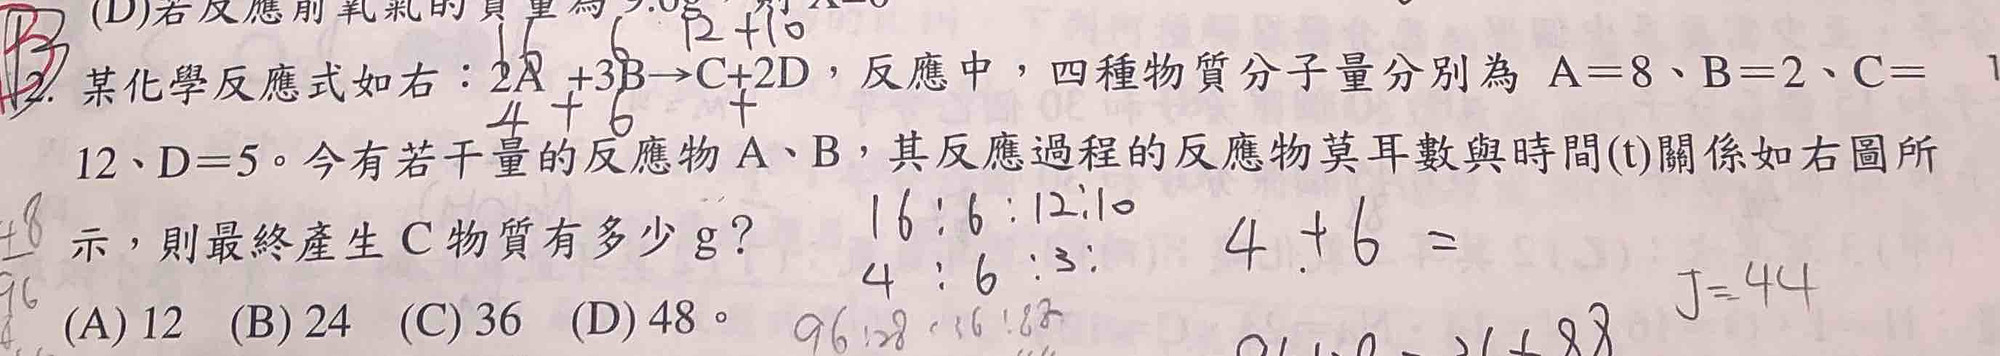 (D)若反應前氧氣的質量為 9.6g,則 X=6
16 6 12+10
B
12. 某化學反應式如右:2A+3B→C+2D,反應中,四種物質分子量分別為 A=8、B=2、C=
4 + 6 +
12、D=5。今有若干量的反應物 A、B,其反應過程的反應物莫耳數與時間(t)關係如右圖所
16:6:12:10
示,則最終產生 C 物質有多少 g?
4:6:3:
4+6=
J=44
(A) 12 (B) 24 (C) 36 (D) 48。